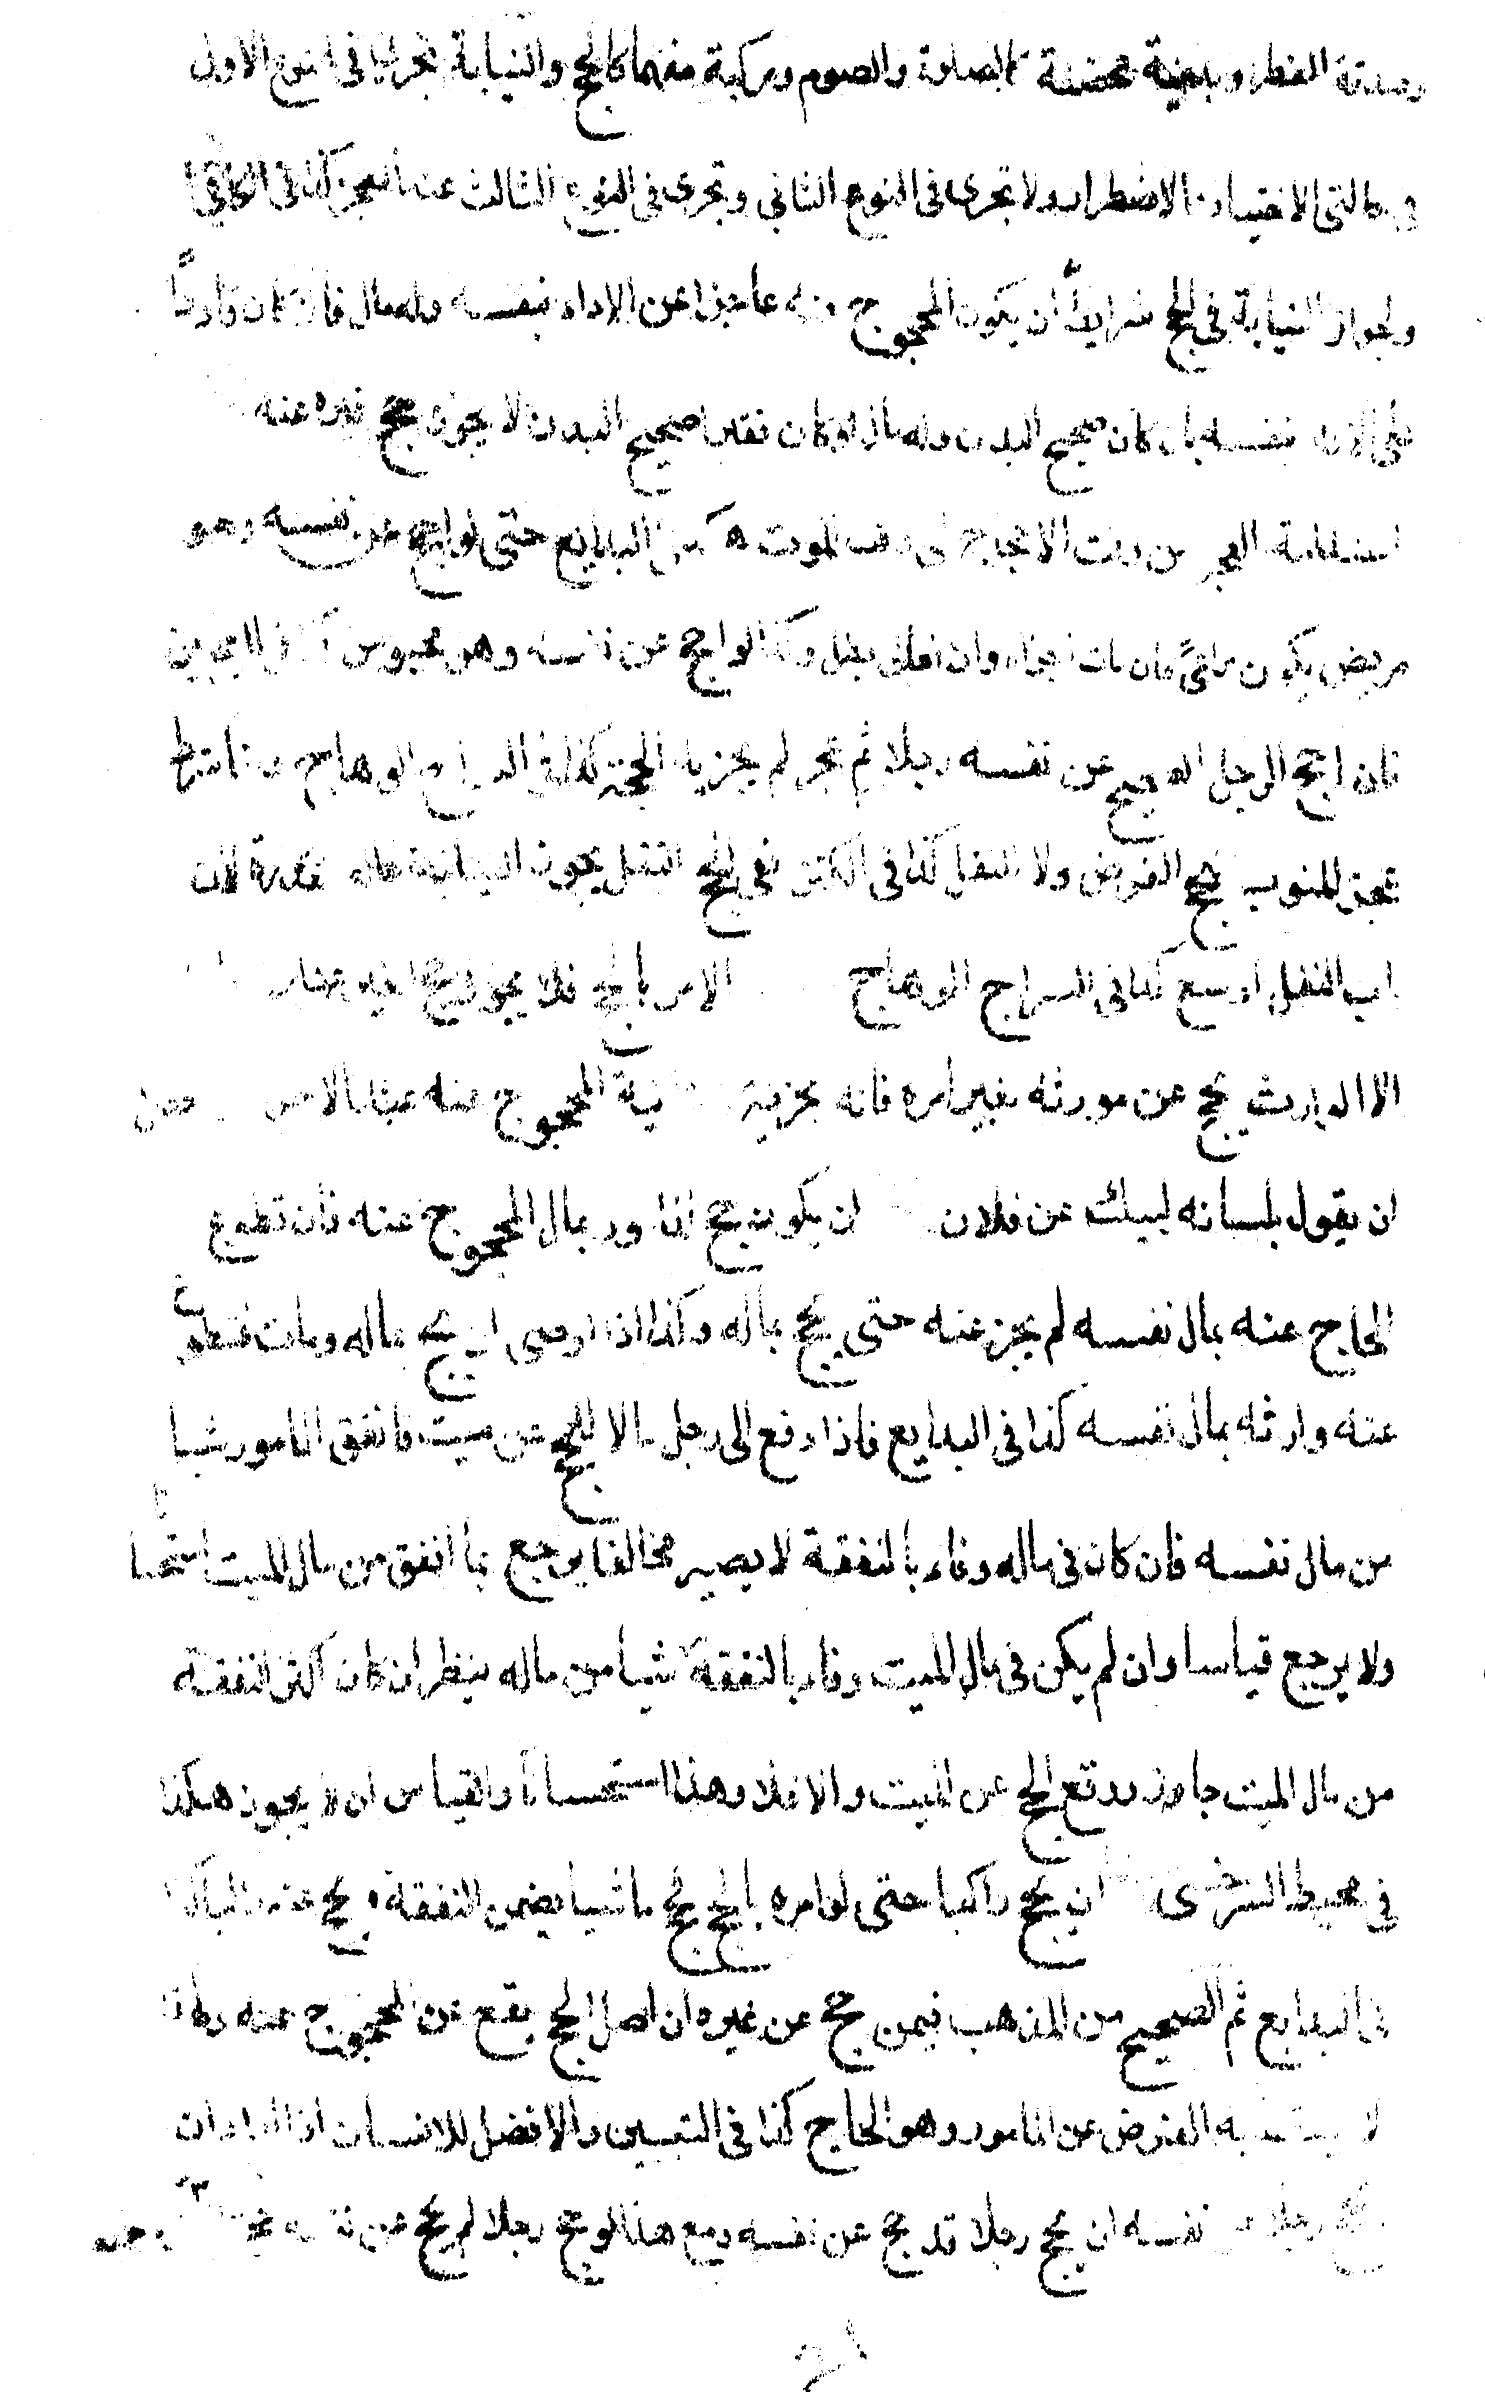 وصدقة الفطر وبدنية محضة كالصلوة والصوم ومركبة منهما كالحج والنيابة تجرى فى النوع الاول
فى حالتى الاختيار والاضطرار ولا تجرى فى النوع الثانى وتجرى فى النوع الثالث عند العجز كذا فى الكافى
ولجواز النيابة فى الحج شرايط ان يكون المحجوج عنه عاجزا عن الاداء بنفسه وله مال فان كان قادرا
على الاداء بنفسه بان كان صحيح البدن وله مال او كان فقيرا صحيح البدن لا يجوز حج غيره عنه
استدامة العجز من وقت الاحجاج الى وقت الموت هكذا البدايع حتى لو احج عن نفسه وهو
مريض يكون مراعى فان مات اجزاه وان بطل وكذا لو احج عن نفسه وهو محبوس
فان احج الرجل الصحيح عن نفسه رجلا ثم عجز لم يجزيه الحجة كذا فى السراج الوهاج
عجز المنوب للحج الفرض ولا النفل كذا فى الكنز ففى الحج النفل يجوز النيابة القدرة لان
باب النفل اوسع كذا فى السراج الوهاج الامر بالحج فلا يجوز حج
الا الوارث يحج عن مورثه بغير امره فانه يجزيه نية المحجوج عنه عند الا
ان يقول بلسانه لبيك عن فلان ان يكون حج المامور بمال المحجوج عنه فان تطوع
الحاج عنه بمال نفسه لم يجز عنه حتى يحج بماله وكذا اذا اوصى ان يحج بماله ومات فتطوع
عنه وارثه بمال نفسه كذا فى البدايع فاذا دفع الى رجل مالا للحج عن ميت فانفق المامور شيا
من مال نفسه فان كان فى ماله وفاء بالنفقة لا يصير مخالفا يرجع بما انفق من مال الميت استحسا
ولا يرجع قياسا وان لم يكن فى مال الميت وفاء بالنفقة شيا من ماله ينظر ان كان اكثر النفقة
من مال الميت جاوز ووقع الحج عن الميت والا فلا وهذا استحسانا والقياس ان لا يجوز هكذا
فى محيط السرخسى ان يحج راكبا حتى لو امره بالحج فحج ماشيا يضمن النفقة ويحج عنه راكبا
فى البدايع ثم الصحيح من المذهب فيمن حج عن غيره ان اصل الحج يقع عن المحجوج عنه
لا يسقط به الفرض عن المامور وهو الحاج كذا فى التبيين والافضل للانسان اذا اراد ان
يحج رجلا عن نفسه ان يحج رجلا قد حج عن نفسه ومع هذا لو احج رجلا لم يحج عن نفسه